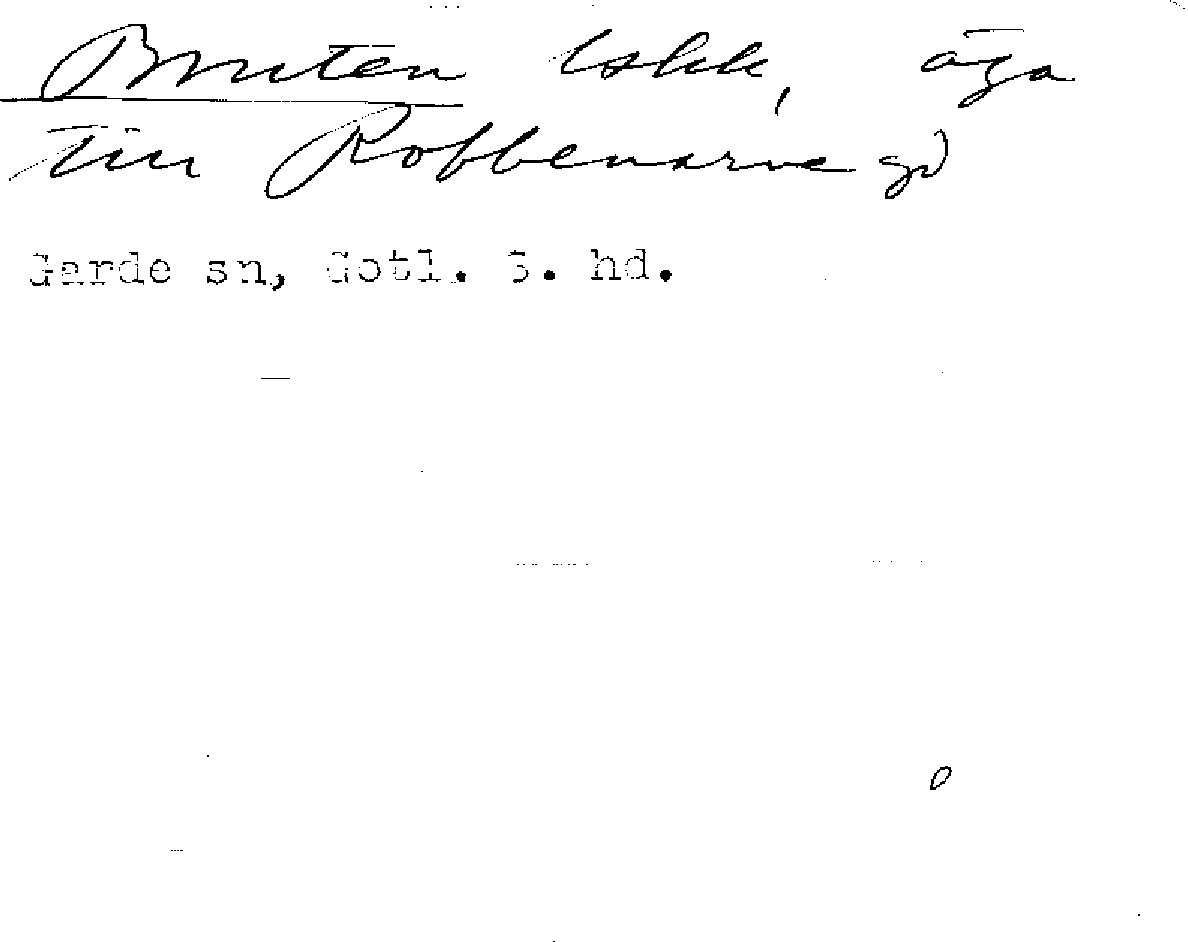 Bruten äga
till Robbenarve gd
Garde sn, Gotl. S. hd.